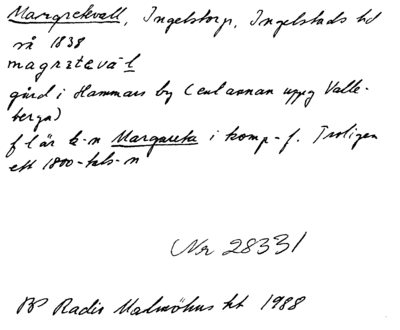 Margretevall, Ingelstorp, Ingelstads hd
rå 1838
magratevá-l
gård i Hammars by (enl annan uppg Valle-
berga)
f l är k-n Margareta i komp-f. Troligen
ett 1800-tals-n
Nr 28331
BP Radis Malmöhus ht 1988